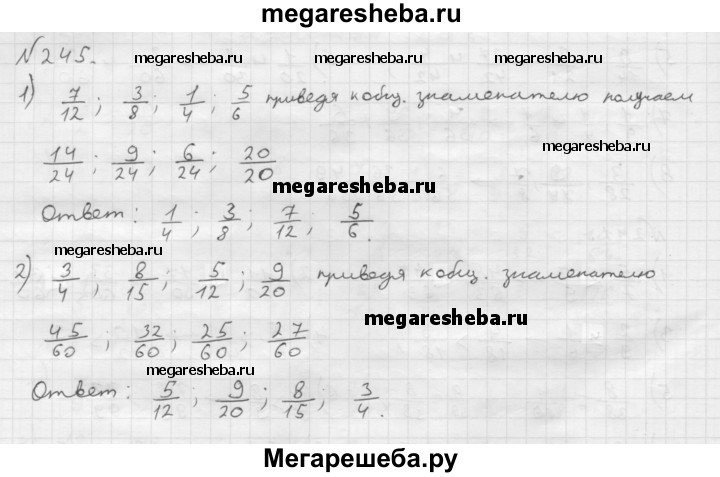 megaresheba.ru
№245. megaresheba.ru megaresheba.ru
1) 7/12; 3/8; 1/4; 5/6 приведя к общ. знаменателю получаем
14/24; 9/24; 6/24; 20/20 megaresheba.ru
megaresheba.ru
Ответ: 1/4; 3/8; 7/12; 5/6.
megaresheba.ru
2) 3/4; 8/15; 5/12; 9/20 приведя к общ. знаменателю
megaresheba.ru
45/60; 32/60; 25/60; 27/60
megaresheba.ru
Ответ: 5/12; 9/20; 8/15; 3/4.
Мегарешеба.ру